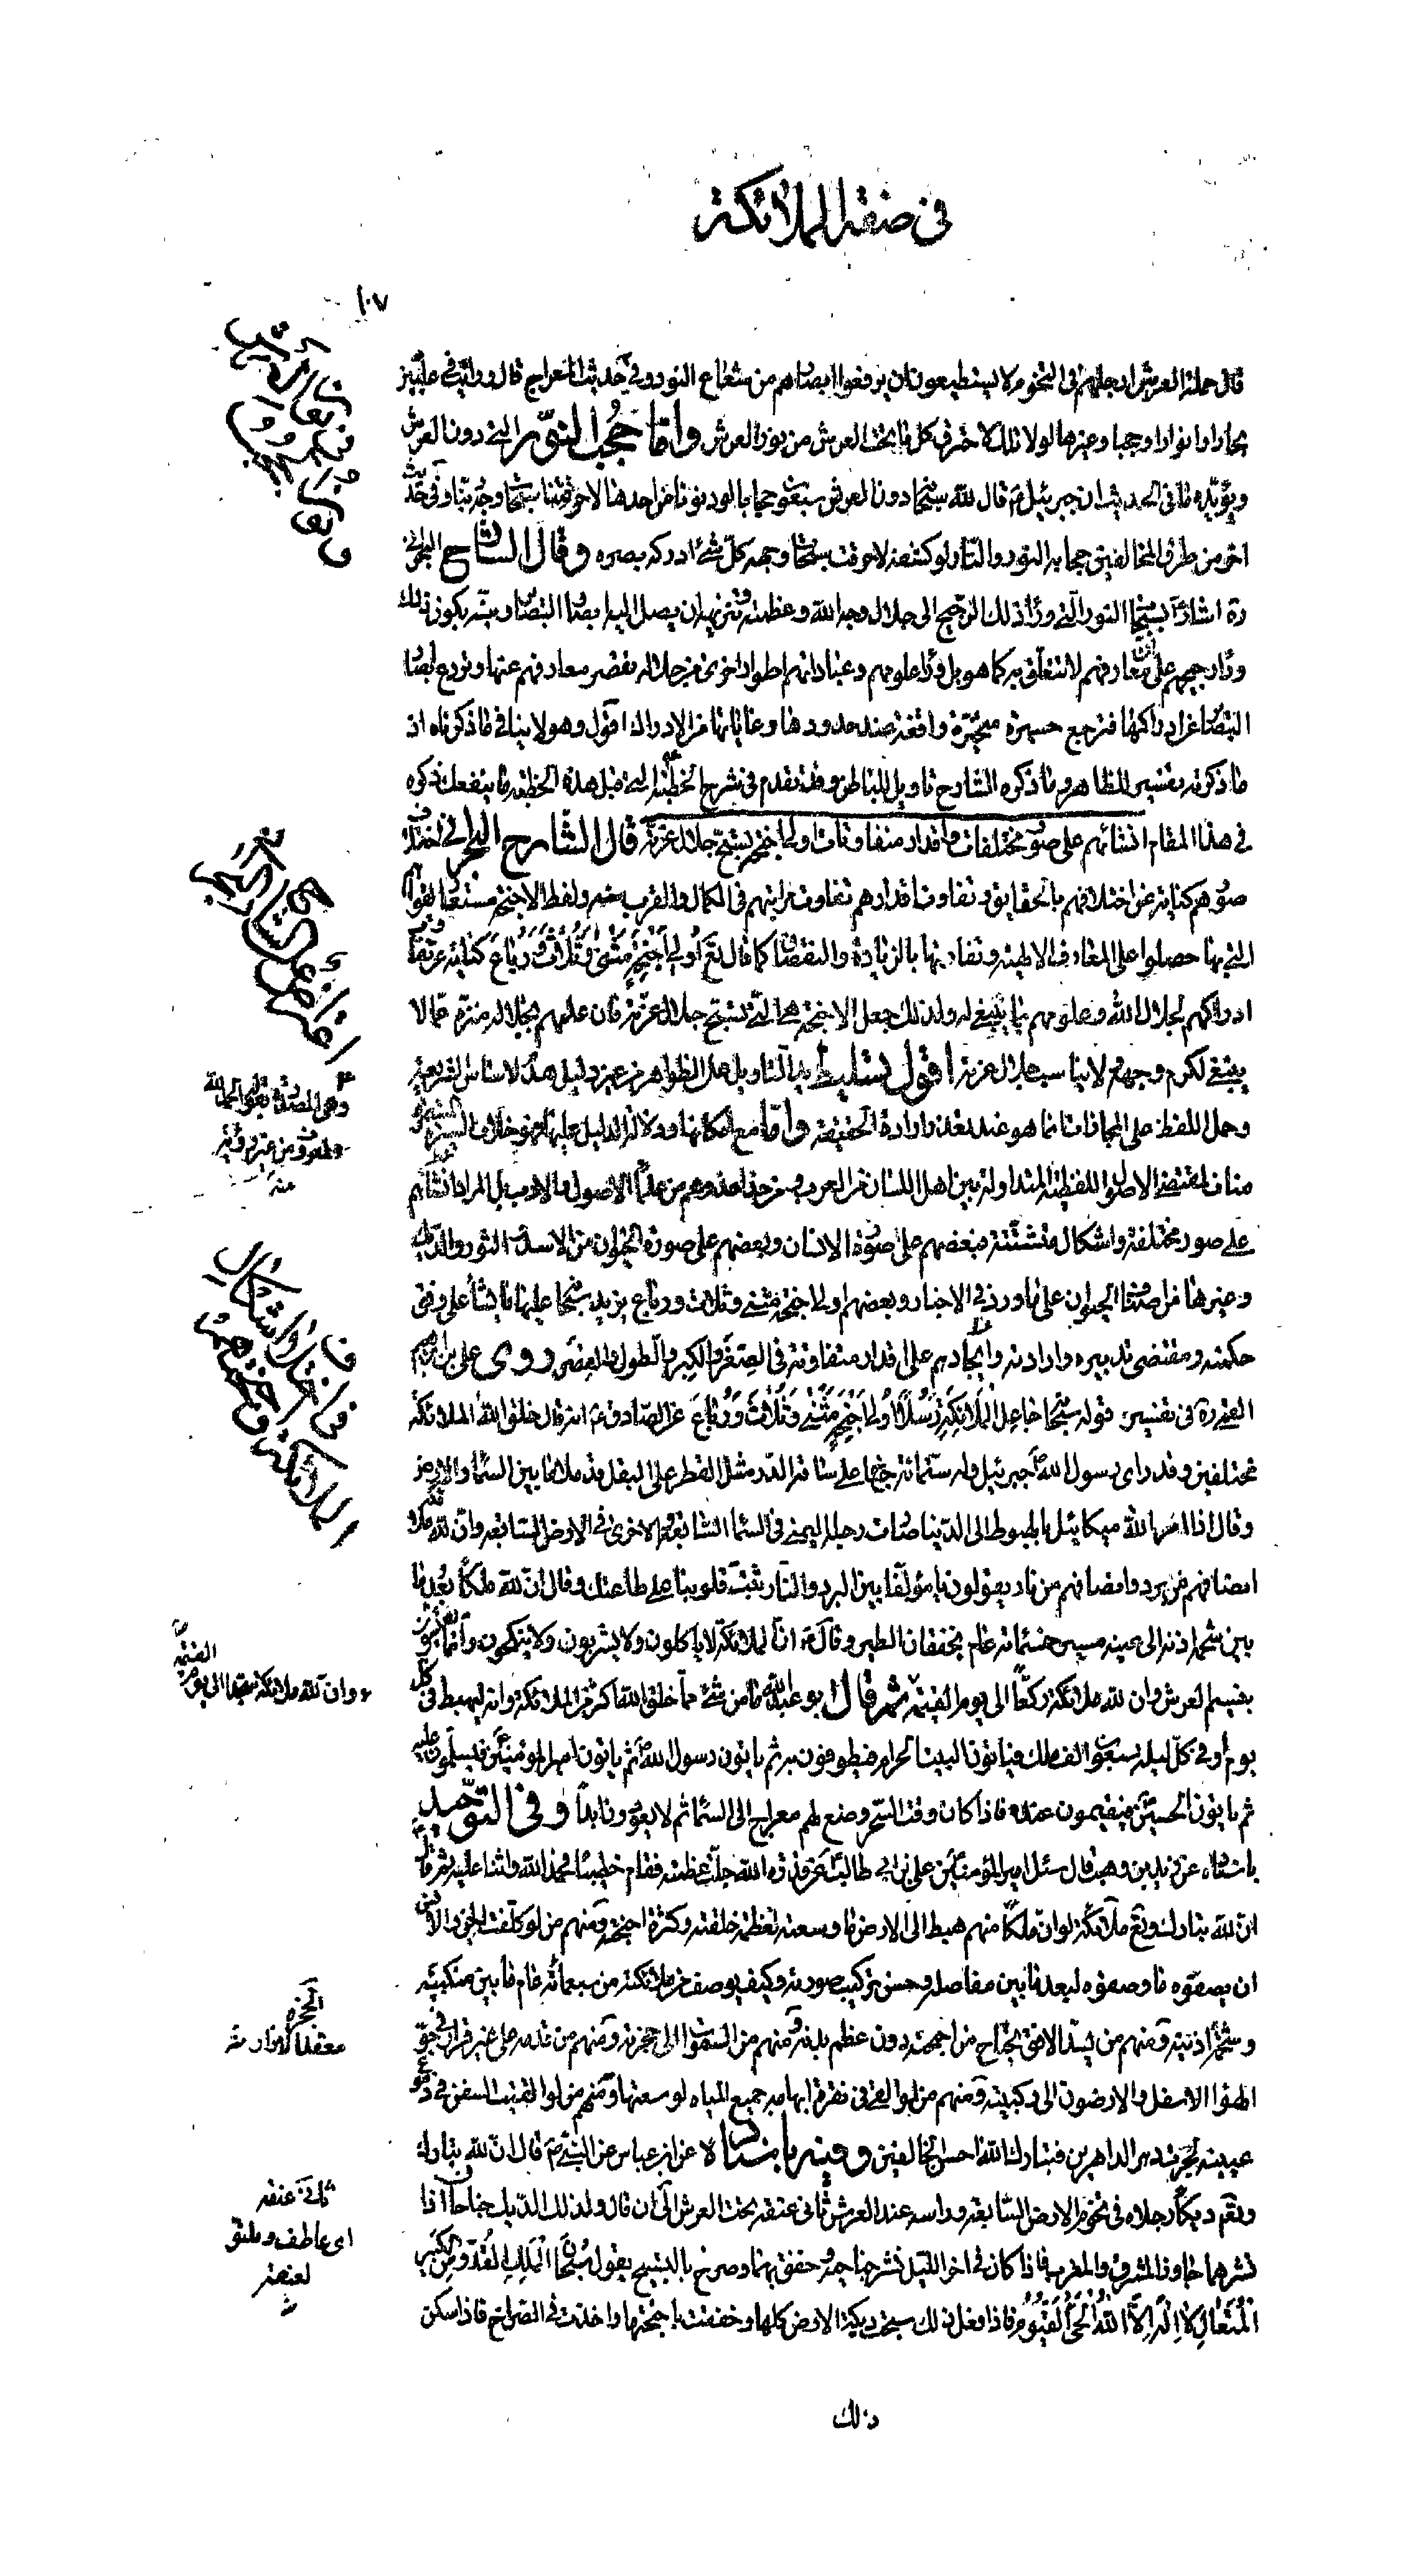 في صفة الملائكة
١٠٧
قال حملة العرش ارجلهم في التخوم لا يستطيعون ان يرفعوا ابصارهم من شعاع النور وفي حديث المعراج قال ورايت في عليين
بحارا وانوارا وحجبا وغيرها لولا تلك لاحترق كل ما تحت العرش من نور العرش واما حجب النور التي دون العرش
ويؤيده ما في الحديث ان جبرئيل ع قال لله سبحانه دون العرش سبعون حجابا لو دنونا من احدها لاحرقتنا سبحات وجه ربنا وفي حديث
اخر من طرق المخالفين حجابه النور والنار لو كشفه لاحرقت سبحات وجهه كل شئ ادركه بصره وقال الشارح البحراني
ره اشار بسبحات النور التي وراء ذلك الرجيج الى جلال وجه الله وعظمته وتنزيهه ان يصل اليه ابصار البصائر ونبه بكون ذلك
وراء رجيجهم على ان معارفهم لا تتعلق به كما هو بل وراء علومهم وعباداتهم اطوار اخرى من جلاله تقصر معارفهم عنها وتردع ابصار
البصائر عن ادراكها فترجع حسيرة متحيرة واقفة عند حدودها وغاياتها من الادراك اقول وهو لا ينافي ما ذكرناه اذ
ما ذكرته تفسير للظاهر وما ذكره الشارح تاويل للباطن وقد تقدم في شرح الخطبة التي قبل هذه الخطبة ما ينفعك ذكره
في هذا المقام انشاهم على صور مختلفات واقدار متفاوتات اولي اجنحة تسبح جلال عزته قال الشارح البحراني اختلاف
صورهم كناية عن اختلافهم بالحقايق وتفاوت اقدارهم تفاوت مراتبهم في الكمال والقرب منه ولفظ الاجنحة مستعار لقواهم
التي بها حصلوا على المعارف الالهية وتفاوتها بالزيادة والنقصان كما قال تع اولي اجنحة مثنى وثلاث ورباع كناية عن تفاوت
ادراكهم لجلال الله وعلومهم بما ينبغي له ولذلك جعل الاجنحة هي التي تسبح جلال عزته فان علمهم بجلاله منزه عما لا
ينبغي لكرم وجهه ولا يناسب جلال عزته اقول تسليط يد التاويل على الظواهر من غير دليل هدم لاساس الشريعة
وحمل اللفظ على المجاز انما هو عند تعذر ارادة الحقيقة واما مع امكانها ودلالة الدليل عليها فهو خلاف
مناف لمقتضى الاصول اللفظية المتداولة بين اهل اللسان من العرب ومن حذا حذوهم من علماء الاصول والادب بل المراد انشائهم
على صور مختلفة واشكال متشتتة فبعضهم على صورة الانسان وبعضهم على صورة الحيوان من الاسد والثور والديك
وغيرها من اصناف الحيوان على ما ورد في الاخبار وبعضهم اولي اجنحة مثنى وثلاث ورباع يزيد سبحانه عليها ما يشاء على وفق
حكمته ومقتضى تدبيره وارادته وايجادهم على اقدار متفاوتة في الصغر والكبر والطول والقصر روى علي بن ابراهيم
القمي ره في تفسير قوله سبحانه جاعل الملائكة رسلا اولي اجنحة مثنى وثلاث ورباع عن الصادق ع انه قال خلق الله الملائكة
مختلفين وقد راى رسول الله ص جبرئيل وله ستمائة جناح على ساقه الدر مثل القطر على البقل قد ملأ ما بين السماء والارض
وقال اذا امر الله ميكائيل بالهبوط الى الدنيا صارت رجله اليمنى في السماء السابعة والاخرى في الارض السابعة وان لله ملائكة
انصافهم من برد وانصافهم من نار يقولون يا مؤلفا بين البرد والنار ثبت قلوبنا على طاعتك وقال ان لله ملكا بعد ما
بين شحمة اذنه الى عينه مسير خمسمائة عام بخفقان الطير وقال ع ان الملائكة لا ياكلون ولا يشربون ولا ينكحون وانما يعيشون
بنسيم العرش وان لله ملائكة ركعا الى يوم القيمة ثم قال ابو عبد الله ما من شئ مما خلق الله اكثر من الملائكة وانه ليهبط في كل
يوم او في كل ليلة سبعون الف ملك فياتون البيت الحرام فيطوفون به ثم ياتون رسول الله ص ثم ياتون امير المؤمنين ع فيسلمون عليه
ثم ياتون الحسين ع فيقيمون عنده فاذا كان وقت السحر وضع لهم معراج الى السماء ثم لا يعودون ابدا وفي التوحيد
باسناده عن زيد بن وهب قال سئل امير المؤمنين علي بن ابي طالب ع عن قدرة الله جلت عظمته فقام خطيبا فحمد الله واثنى عليه ثم قال
ان لله تبارك وتع ملائكة لو ان ملكا منهم هبط الى الارض ما وسعته لعظم خلقته وكثرة اجنحته ومنهم من لو كلفت الجن والانس
ان يصفوه ما وصفوه لبعد ما بين مفاصله وحسن تركيب صورته وكيف يوصف من ملائكته من سبعمائة عام ما بين منكبيه
وشحمة اذنيه ومنهم من يسد الافق بجناح من اجنحته دون عظم بدنه ومنهم من السموات الى حجزته ومنهم من قدمه على غير قرار في جو
الهواء الاسفل والارضون الى ركبتيه ومنهم من لو القى في نقرة ابهامه جميع المياه لوسعتها ومنهم من لو القيت السفن في دموع
عينيه لجرت دهر الداهرين فتبارك الله احسن الخالقين وفيه باسناده عن ابن عباس عن النبي ص قال ان لله تبارك
وتعم ديكا رجلاه في تخوم الارض السابعة وراسه عند العرش ثاني عنقه تحت العرش الى ان قال ولذلك الديك جناحان اذا
نشرهما جاوزا المشرق والمغرب فاذا كان في اخر الليل نشر جناحيه وخفق بهما وصرخ بالتسبيح يقول سبحان الملك القدوس الكبير
المتعال لا اله الا الله الحي القيوم فاذا فعل ذلك سبحت ديكة الارض كلها وخفقت باجنحتها واخذت في الصراخ فاذا سكن
ذلك
اعتراض على الشارح البحراني
في اختلاف اشكال
الملائكة واجنحتهم
وان لله ملائكة سجدا الى يوم القيمة
الحجزة
معقد الازار منه
ثاني عنقه
اى عاطف وملتو
لعنقه